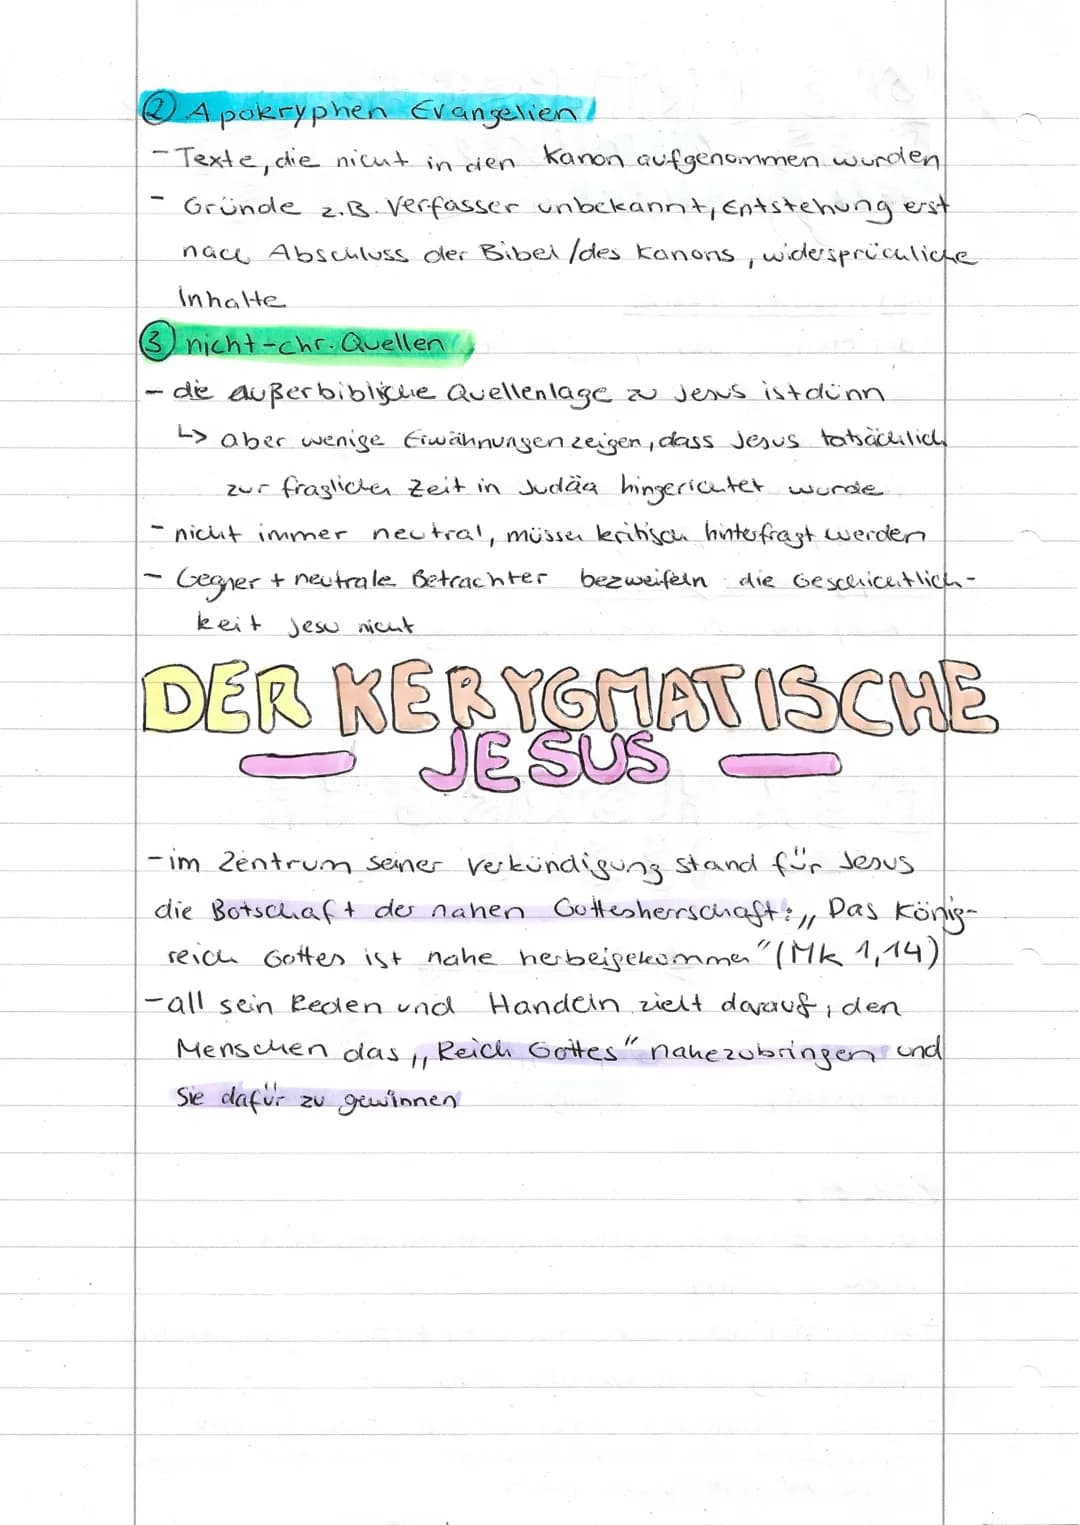 ② Apokryphen Evangelien
- Texte, die nicht in den Kanon aufgenommen wurden
- Gründe z.B. Verfasser unbekannt, Entstehung erst
nach Abschluss der Bibel /des Kanons, widersprüchliche
Inhalte
③ nicht-chr. Quellen
- die außerbiblische Quellenlage zu Jesus ist dünn
↳ aber wenige Erwähnungen zeigen, dass Jesus tatsächlich
zur fraglichen Zeit in Judäa hingerichtet wurde
- nicht immer neutral, müssen kritisch hinterfragt werden
- Gegner + neutrale Betrachter bezweifeln die Geschichtlich-
keit Jesu nicht
DER KERYGMATISCHE
JESUS
- im Zentrum seiner Verkündigung stand für Jesus
die Botschaft der nahen Gottesherrschaft: „Das König-
reich Gottes ist nahe herbeigekommen" (Mk 1,14)
- all sein Reden und Handeln zielt darauf, den
Menschen das „Reich Gottes" nahezubringen und
Sie dafür zu gewinnen